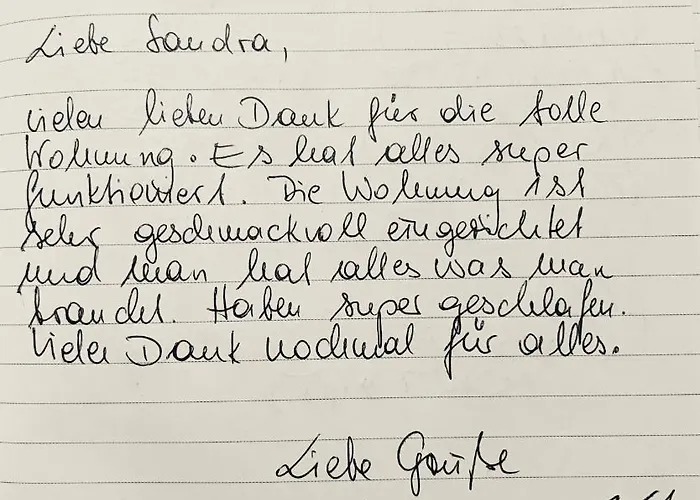 Liebe Sandra,
vielen lieben Dank für die tolle
Wohnung. Es hat alles super
funktioniert. Die Wohnung ist
sehr geschmackvoll eingerichtet
und man hat alles was man
braucht. Haben super geschlafen.
Vielen Dank nochmal für alles.
Liebe Grüße